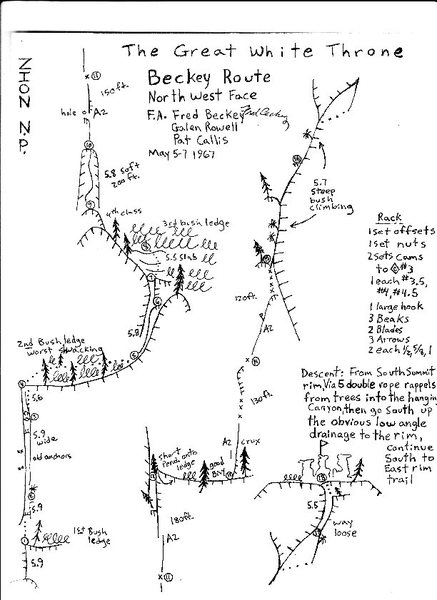 The Great White Throne
ZION N.P.
Beckey Route
North West Face
F.A. Fred Beckey
Galen Rowell
Pat Callis
May 5-7 1967
150ft.
hole
A2
5.8 soft
200ft.
4th class
3rd bush ledge
5.5 slab
5.8
2nd Bush ledge
worst swacking
5.6
5.9
wide
old anchors
5.9
1st Bush
ledge
5.9
5.7
steep
bush
climbing
120ft.
A2
130ft.
A2
crux
short
pendi onto
ledge
good
BIVY
180ft.
A2
11
Rack
1 set offsets
1 set nuts
2 sets cams
to #3
1 each #3.5,
#4, #4.5
1 large hook
3 Beaks
2 Blades
3 Arrows
2 each 1/2, 5/8, 1
Descent: From South Summit
rim, Via 5 double rope rappels
from trees into the hanging
Canyon, then go south up
the obvious low angle
drainage to the rim,
continue
South to
East rim
trail
5.5
way
loose